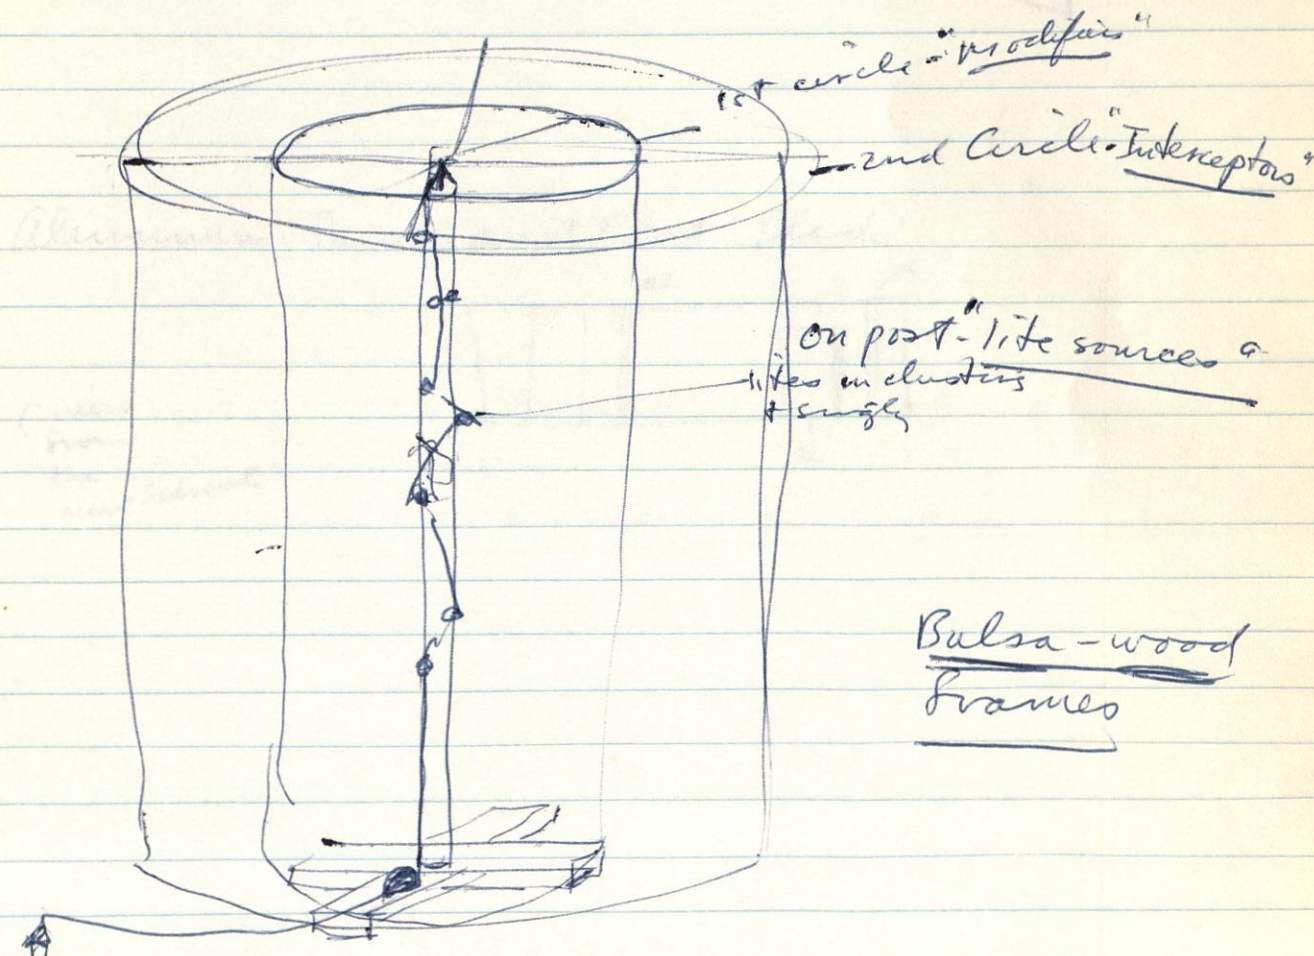 1st circle - "modifiers"
2nd Circle "Interceptors"
on post - "lite sources"
lites in clusters
+ singly
Balsa-wood
frames